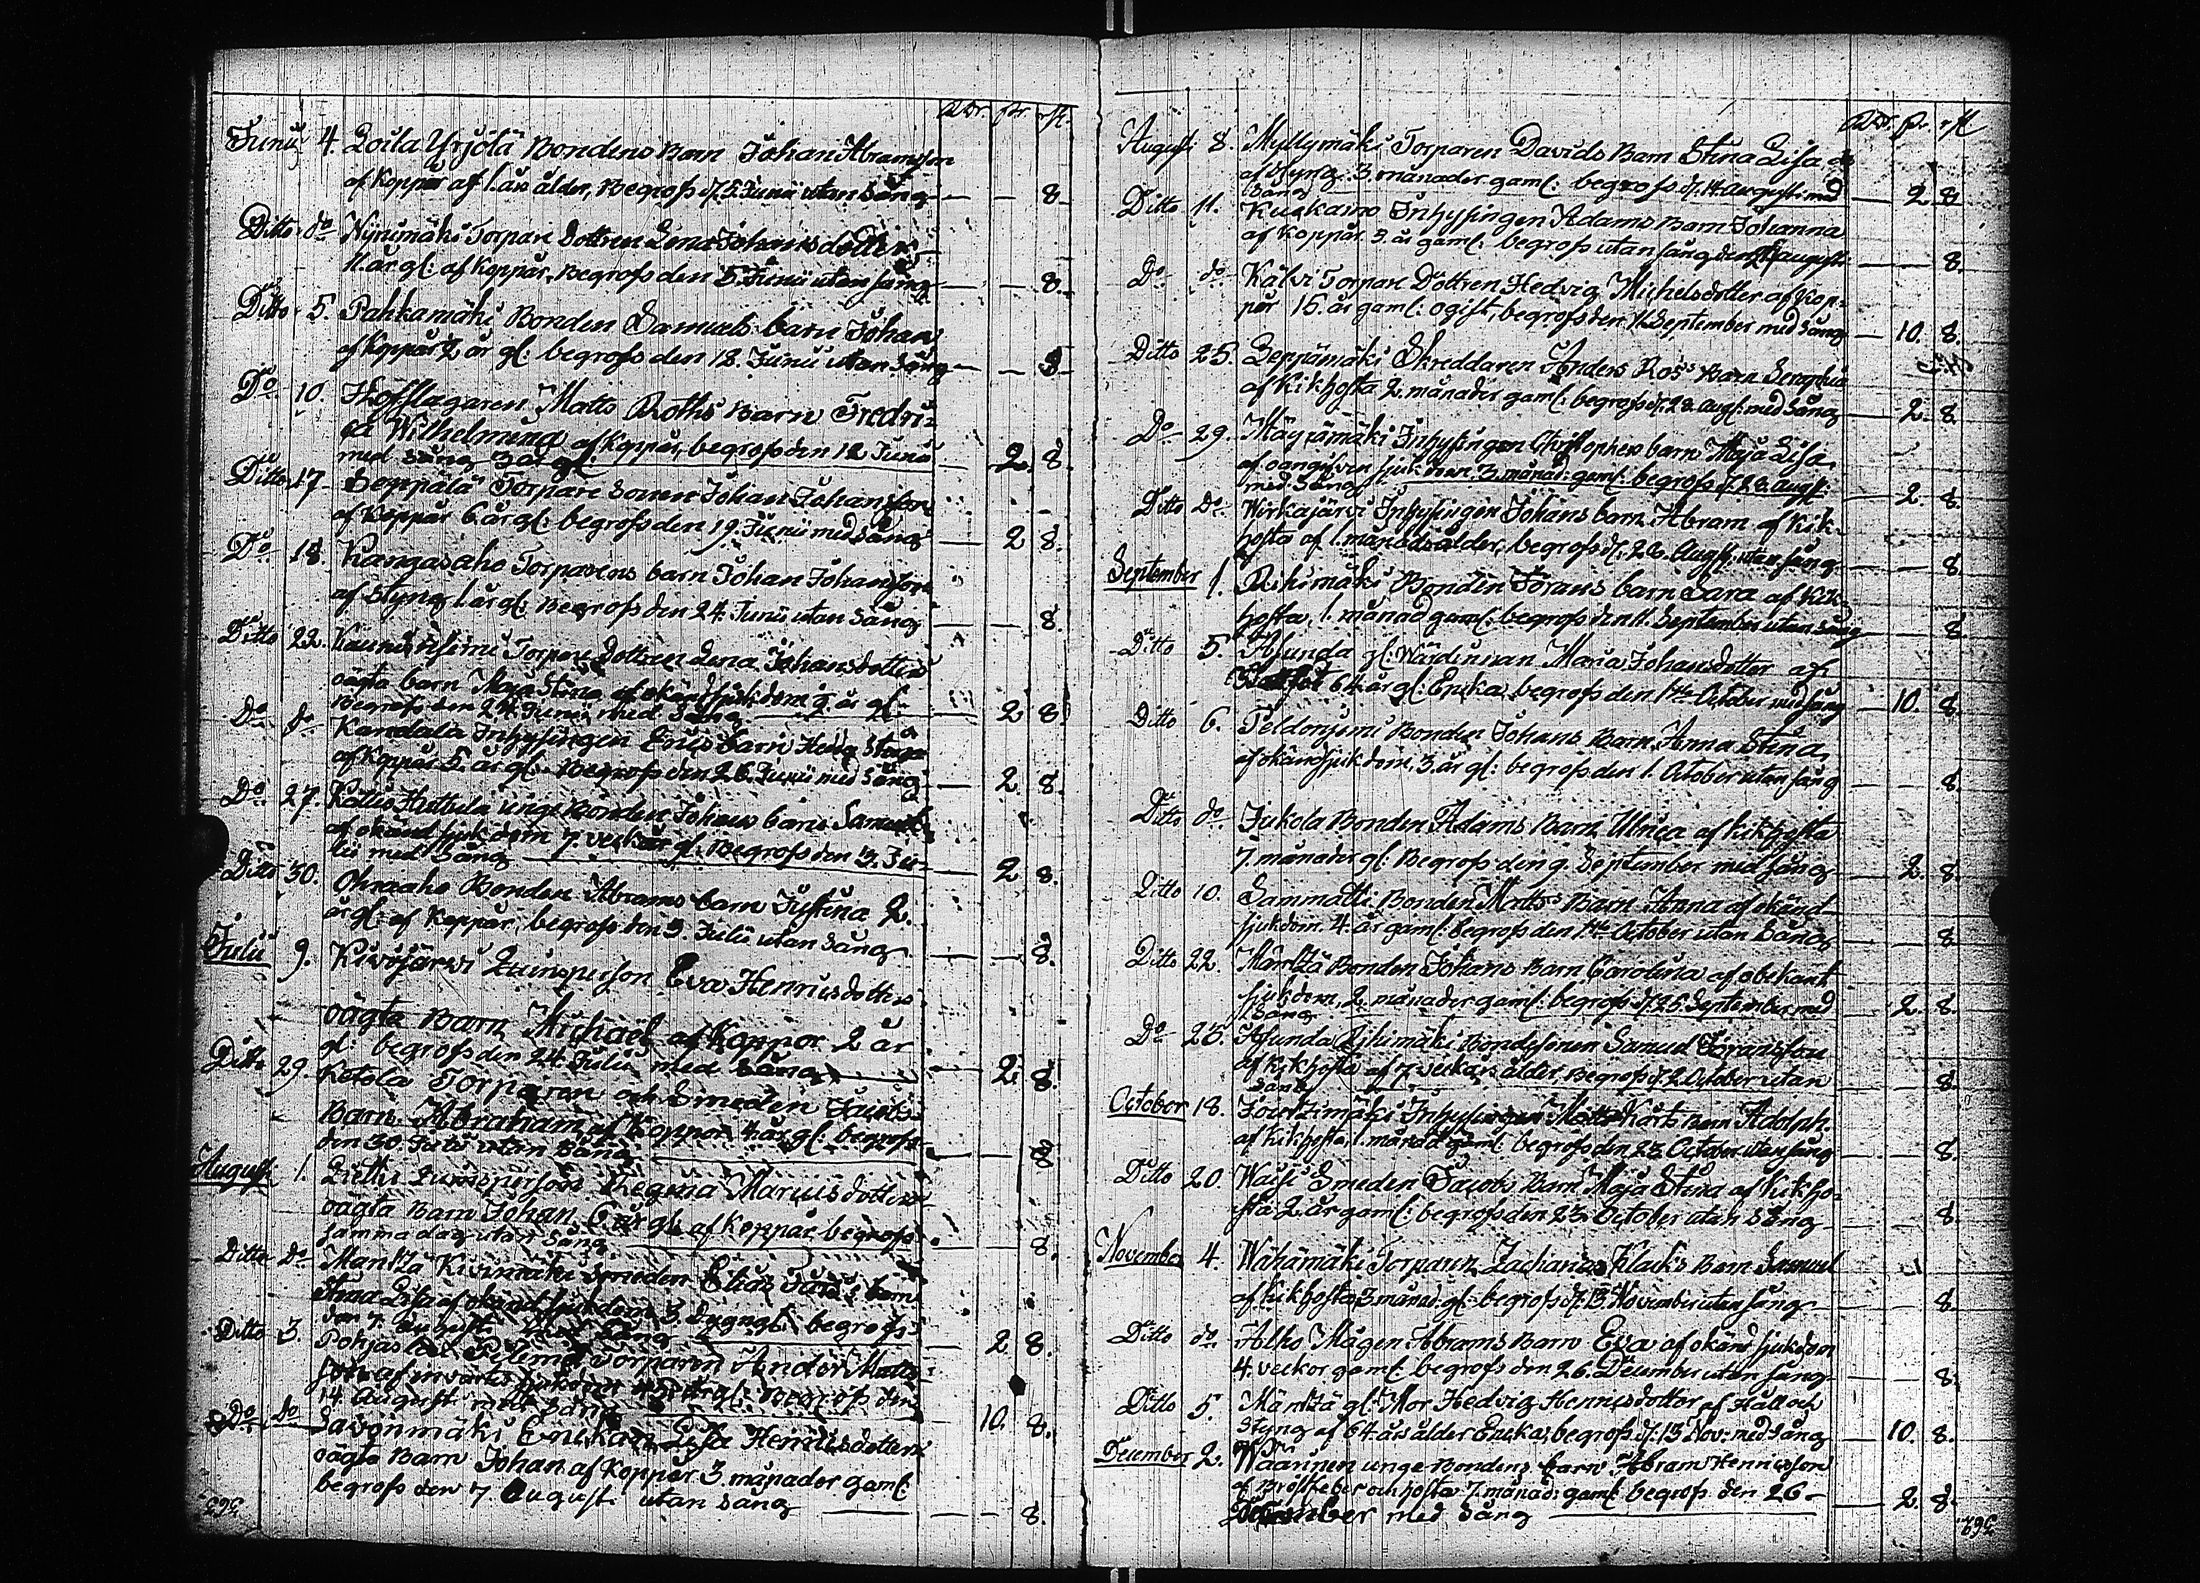 Rdr. ps. rst.
Junii 4. Zoila Yrjölä Bondens Barn Johan Abramsson
af Koppår af 1. års ålder, Begrofs d. 5. Junii utan Sång — — 8
Ditto do Nynimäki Torpare dottren Lena Johansdotter
11. år gl: af Koppår, Begrofs den 5. Junii utan sång — — 8.
Ditto 5. Pahkamäki Bonden Samuels barn Johan
af Koppår 2 år gl: begrofs den 18. Junii utan Sång — — 8
Do 10. Hofslagaren Matts Roths Barn Fredri-
ca Wilhelmina af Koppår, begrofs den 12 Junii
med Sång 3 år gl. — 2. 8.
Ditto 17. Seppälä Torpare Sonen Johan Johansson
af Koppår 6 år gl: begrofs den 19. Junii med Sång — 2 8.
Do 18. Kangasaho Torparens barn Johan Johansson
af Styng 1. år gl: Begrofs den 24. Junii utan Sång — — 8.
Ditto 22. Torpare dottren Lena Johansdotters
oägta barn Maja Stina af okänd sjukdom år gl.
Begrofs den 24 Junii med Sång — 2 8.
Do do Kandala Inhysingen barn
af Koppår 5. år gl: Begrofs den 26. Junii med Sång 2 8.
Do 27. unge Bonden Johans barn Samuel
af okänd sjukdom 7. gl: Begrofs den 3. Ju-
lii med Sång — 2 8.
Ditto 30. Ohraaho Bonden Abrams barn Justina 2.
år gl: af Koppår, begrofs den 3. Julii utan Sång — — 8.
Julii 9. Kivijärvi Quinsperson Eva Henricsdotters
oägta Barn Michael af Koppor 2 år
gl: begrofs den 24. Julii med Sång — 2. 8.
Ditto 29. Ketola Torparen och Smeden Jacobs
Barn Abraham af Koppor 4 år gl: begrofs
den 30. Julii utan Sång — — 8
August 1. Quinsperson Regina dotters
oägta Barn Johan 6 år gl. af Koppår begrofs
samma dag utan Sång — — 8.
Ditto do Mäntzä Kivimäki Smeden Elias barn
Anna Lisa af okänd sjukdom 3. dagar gl: begrofs
den 7. Augusti med Sång — 2 8.
Ditto 3. Torparen Anders Matts-
son af sjukdom år gl: Begrofs den
14. Augusti med Sång — 10. 8.
Do do Savonmäki Enkan Lisa Henricsdotters
oägta Barn Johan af Koppår 3. månader gaml.
begrofs den 7 August. utan Sång — — 8.
363.
Rdr. ps. rst
August 8. Myllymäki Torparen Davids Barn Stina Lisa
af Styng 3. månader gaml: begrofs d. 14. august. med
Sång — 2 8
Ditto 11. Inhysingen Adams Barn Johanna
af Koppår 3. år gaml: begrofs utan sång den augusti — — 8.
Do do Kälvi Torpare Dottren Hedvig Michelsdotter af Kop-
pår 15. år gaml: ogift, begrofs den 1. September med Sång — 10. 8.
Ditto 25. Leppämäki Skreddaren Anders Ros's Barn Seraphia
af Kikhosta 2. månader gaml: begrofs d. 28. Aug: med Sång — 2. 8.
Do 29. Mäyrämäki Inhysingen Christophers barn Maja Lisa
af oangifven sjukdom, 3. månad: gaml: begrofs d. 28. Aug:
med Sång — 2. 8.
Ditto Do Wirkajärvi Inhysingen Johans barn Abram af Kik-
hosta af 1. månads ålder, begrofs d. 28. Aug: utan sång — — 8.
September 1. Riihimäki Bonden Görans barn Sara af Kik-
hosta, 1. månad gaml: begrofs den 11. September utan Sång — — 8.
Ditto 5. Asunda gl: Wärdinnan Maria Johansdotter af
64 år gl: Enka, begrofs den 1. October med sång — 10. 8.
Ditto 6. Peldoniemi Bonden Johans Barn Anna Stina
af okänd sjukdom, 3. år gl: begrofs den 1. October utan sång — 8.
Ditto do Jukola Bonden Adams Barn Ulrica af Kikhosta
7. månader gl: Begrofs den 9. September med sång — 2. 8.
Ditto 10. Sammatti Bonden Matts Barn Anna af okänd
sjukdom 4. år gaml: begrofs den 1. October utan Sång — — 8.
Ditto 22. Mäntzä Bonden Johans Barn Carolina af obekant
sjukdom, 2. månader gaml: begrofs d. 25. September med
Sång — 2. 8.
Do 23. Asunda Riihimäki Bondesonen Samuel Göransson
af Kikhosta af 7. veckors ålder, Begrofs d. 2. October utan
Sång — — 8.
October 18. Inhysingen Barn Adolph.
af Kikhosta, 1. månad gaml. begrofs den 23. October utan sång — — 8.
Ditto 20. Smeden Jacobs Barn Maja Stina af Kikho-
sta 2. år gaml: begrofs den 23. October utan Sång — — 8.
November 4. Torparen Zacharias Klack's Barn Samuel
af Kikhosta, 3. månad: gl: begrofs d. 13. November utan sång — — 8.
Ditto do Alho Mågen Abrams Barn Eva af okänd sjukdom
4. veckor gaml. begrofs den 26. December utan Sång — — 8.
Ditto 5. Mäntzä gl: Mor Hedvig Henricsdotter af Håll och
Styng af 64. års ålder Enka, begrofs d. 13 Nov: med Sång — 10. 8.
December 2. Waarinen unge Bondens barn Abram Henricsson
af Bröstfeber och hosta 7. månad: gaml. begrofs den 26
December med Sång — 2. 8.
362.